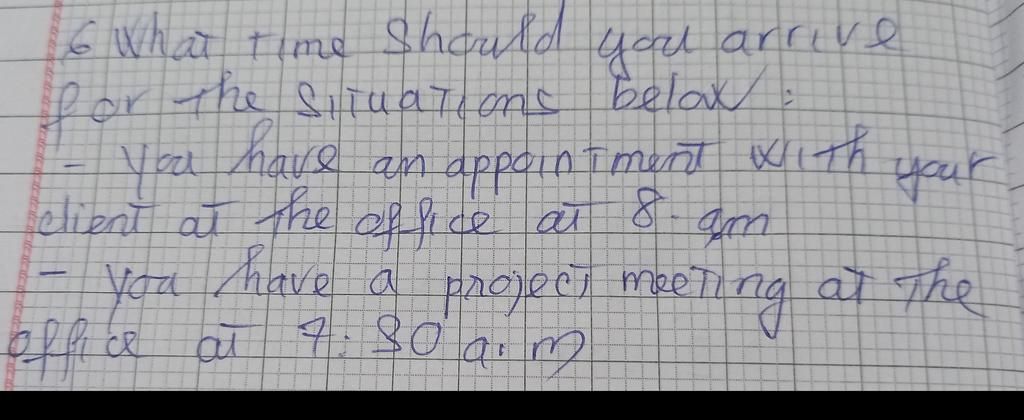 6 What time should you arrive
for the situations below :
- you have an appointment with your
client at the office at 8. am
- you have a project meeting at the
office at 7:30 a.m